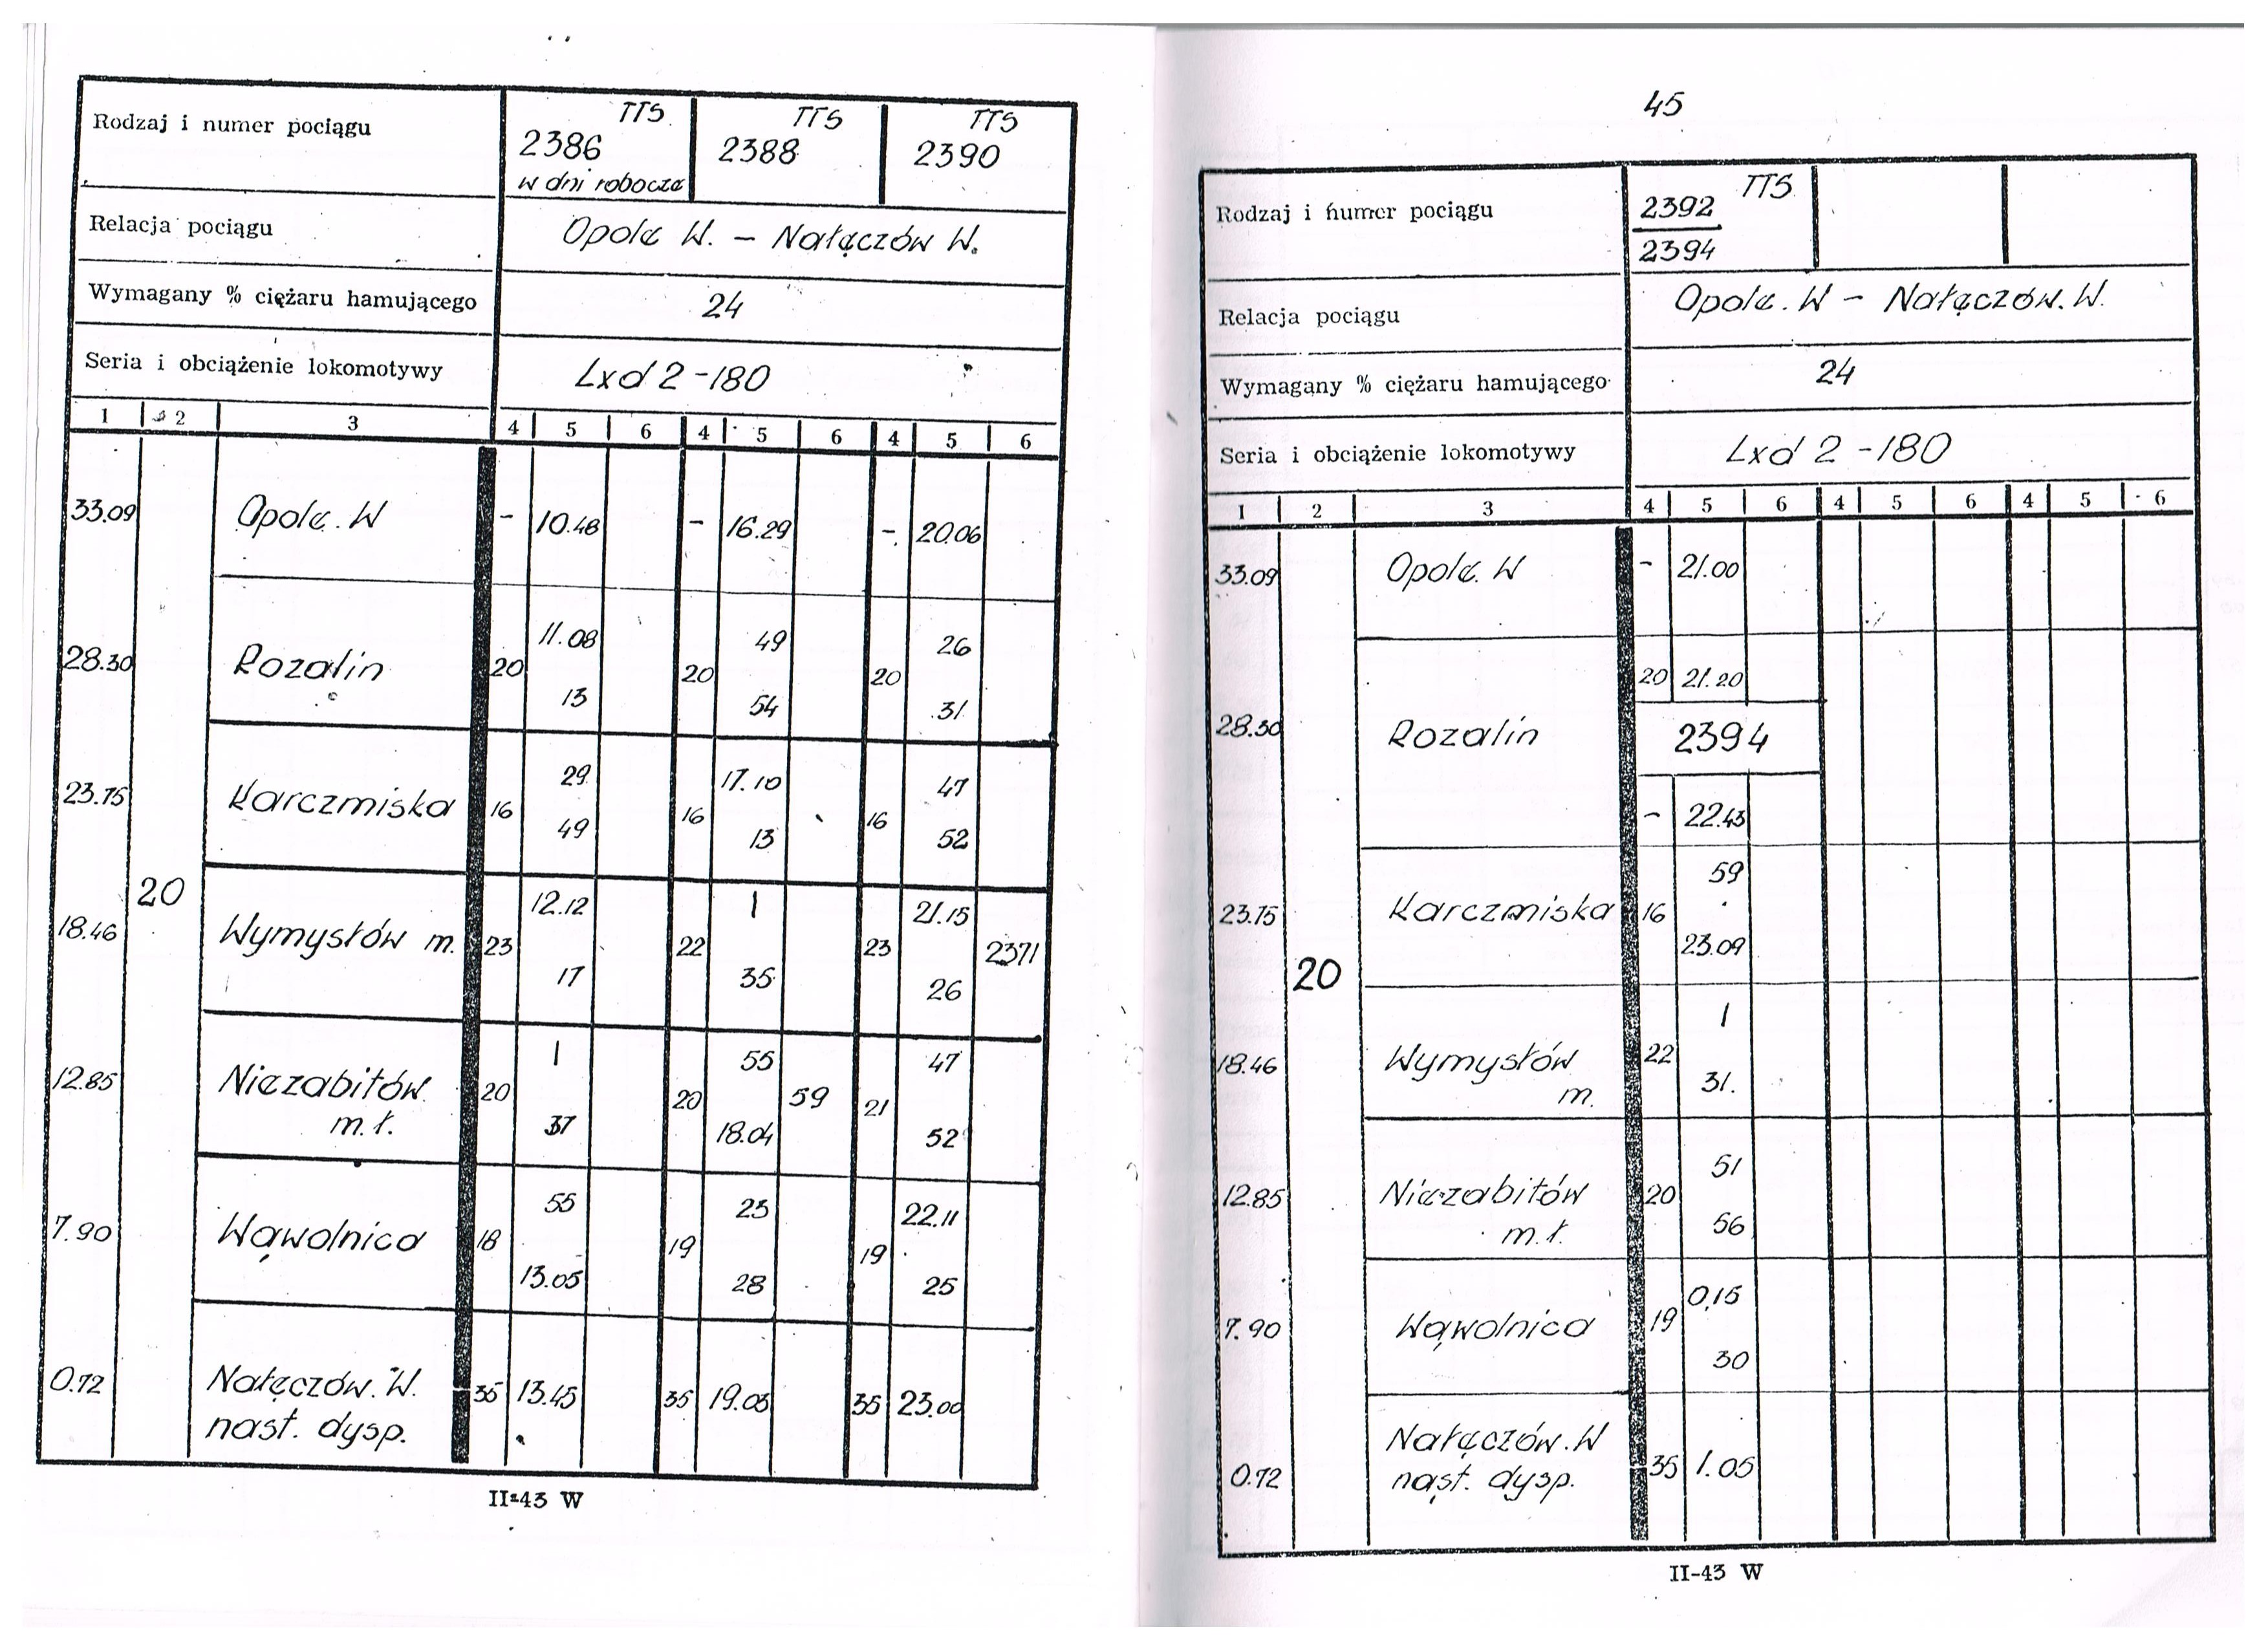 Rodzaj i numer pociągu
TTS
2386
w dni robocze
TTS
2388
TTS
2390
Relacja pociągu
Opole W. - Nałęczów W.
Wymagany % ciężaru hamującego
24
Seria i obciążenie lokomotywy
Lxd2-180
1 2 3 4 5 6 4 5 6 4 5 6
33.09 Opole. W - 10.48 - 16.29 - 20.06
11.08 49 26
28.30 Rozalin 20 20 20
13 54 31
29 17.10 47
23.75 Karczmiska 16 16 16
49 13 52
20
12.12 | 21.15
18.46 Wymysłów m. 23 22 23 2371
17 35 26
| 55 47
12.85 Niezabitów 20 20 59 21
m.ł. 37 18.04 52
55 23 22.11
7.90 Wąwolnica 18 19 19
13.05 28 25
0.72 Nałęczów. W. 35 13.45 35 19.03 35 23.00
nast. dysp.
II-43 W
45
Rodzaj i numer pociągu
TTS
2392
2394
Relacja pociągu
Opole. W - Nałęczów. W.
Wymagany % ciężaru hamującego
24
Seria i obciążenie lokomotywy
Lxd 2 -180
1 2 3 4 5 6 4 5 6 4 5 6
33.09 Opole. W - 21.00
20 21.20
28.30 Rozalin 2394
- 22.43
59
23.75 Karczmiska 16
23.09
20
|
18.46 Wymysłów 22
m. 31.
51
12.85 Niezabitów 20
m.ł. 56
0,15
7.90 Wąwolnica 19
30
Nałęczów. W
0.72 nast. dysp. 35 1.05
II-43 W